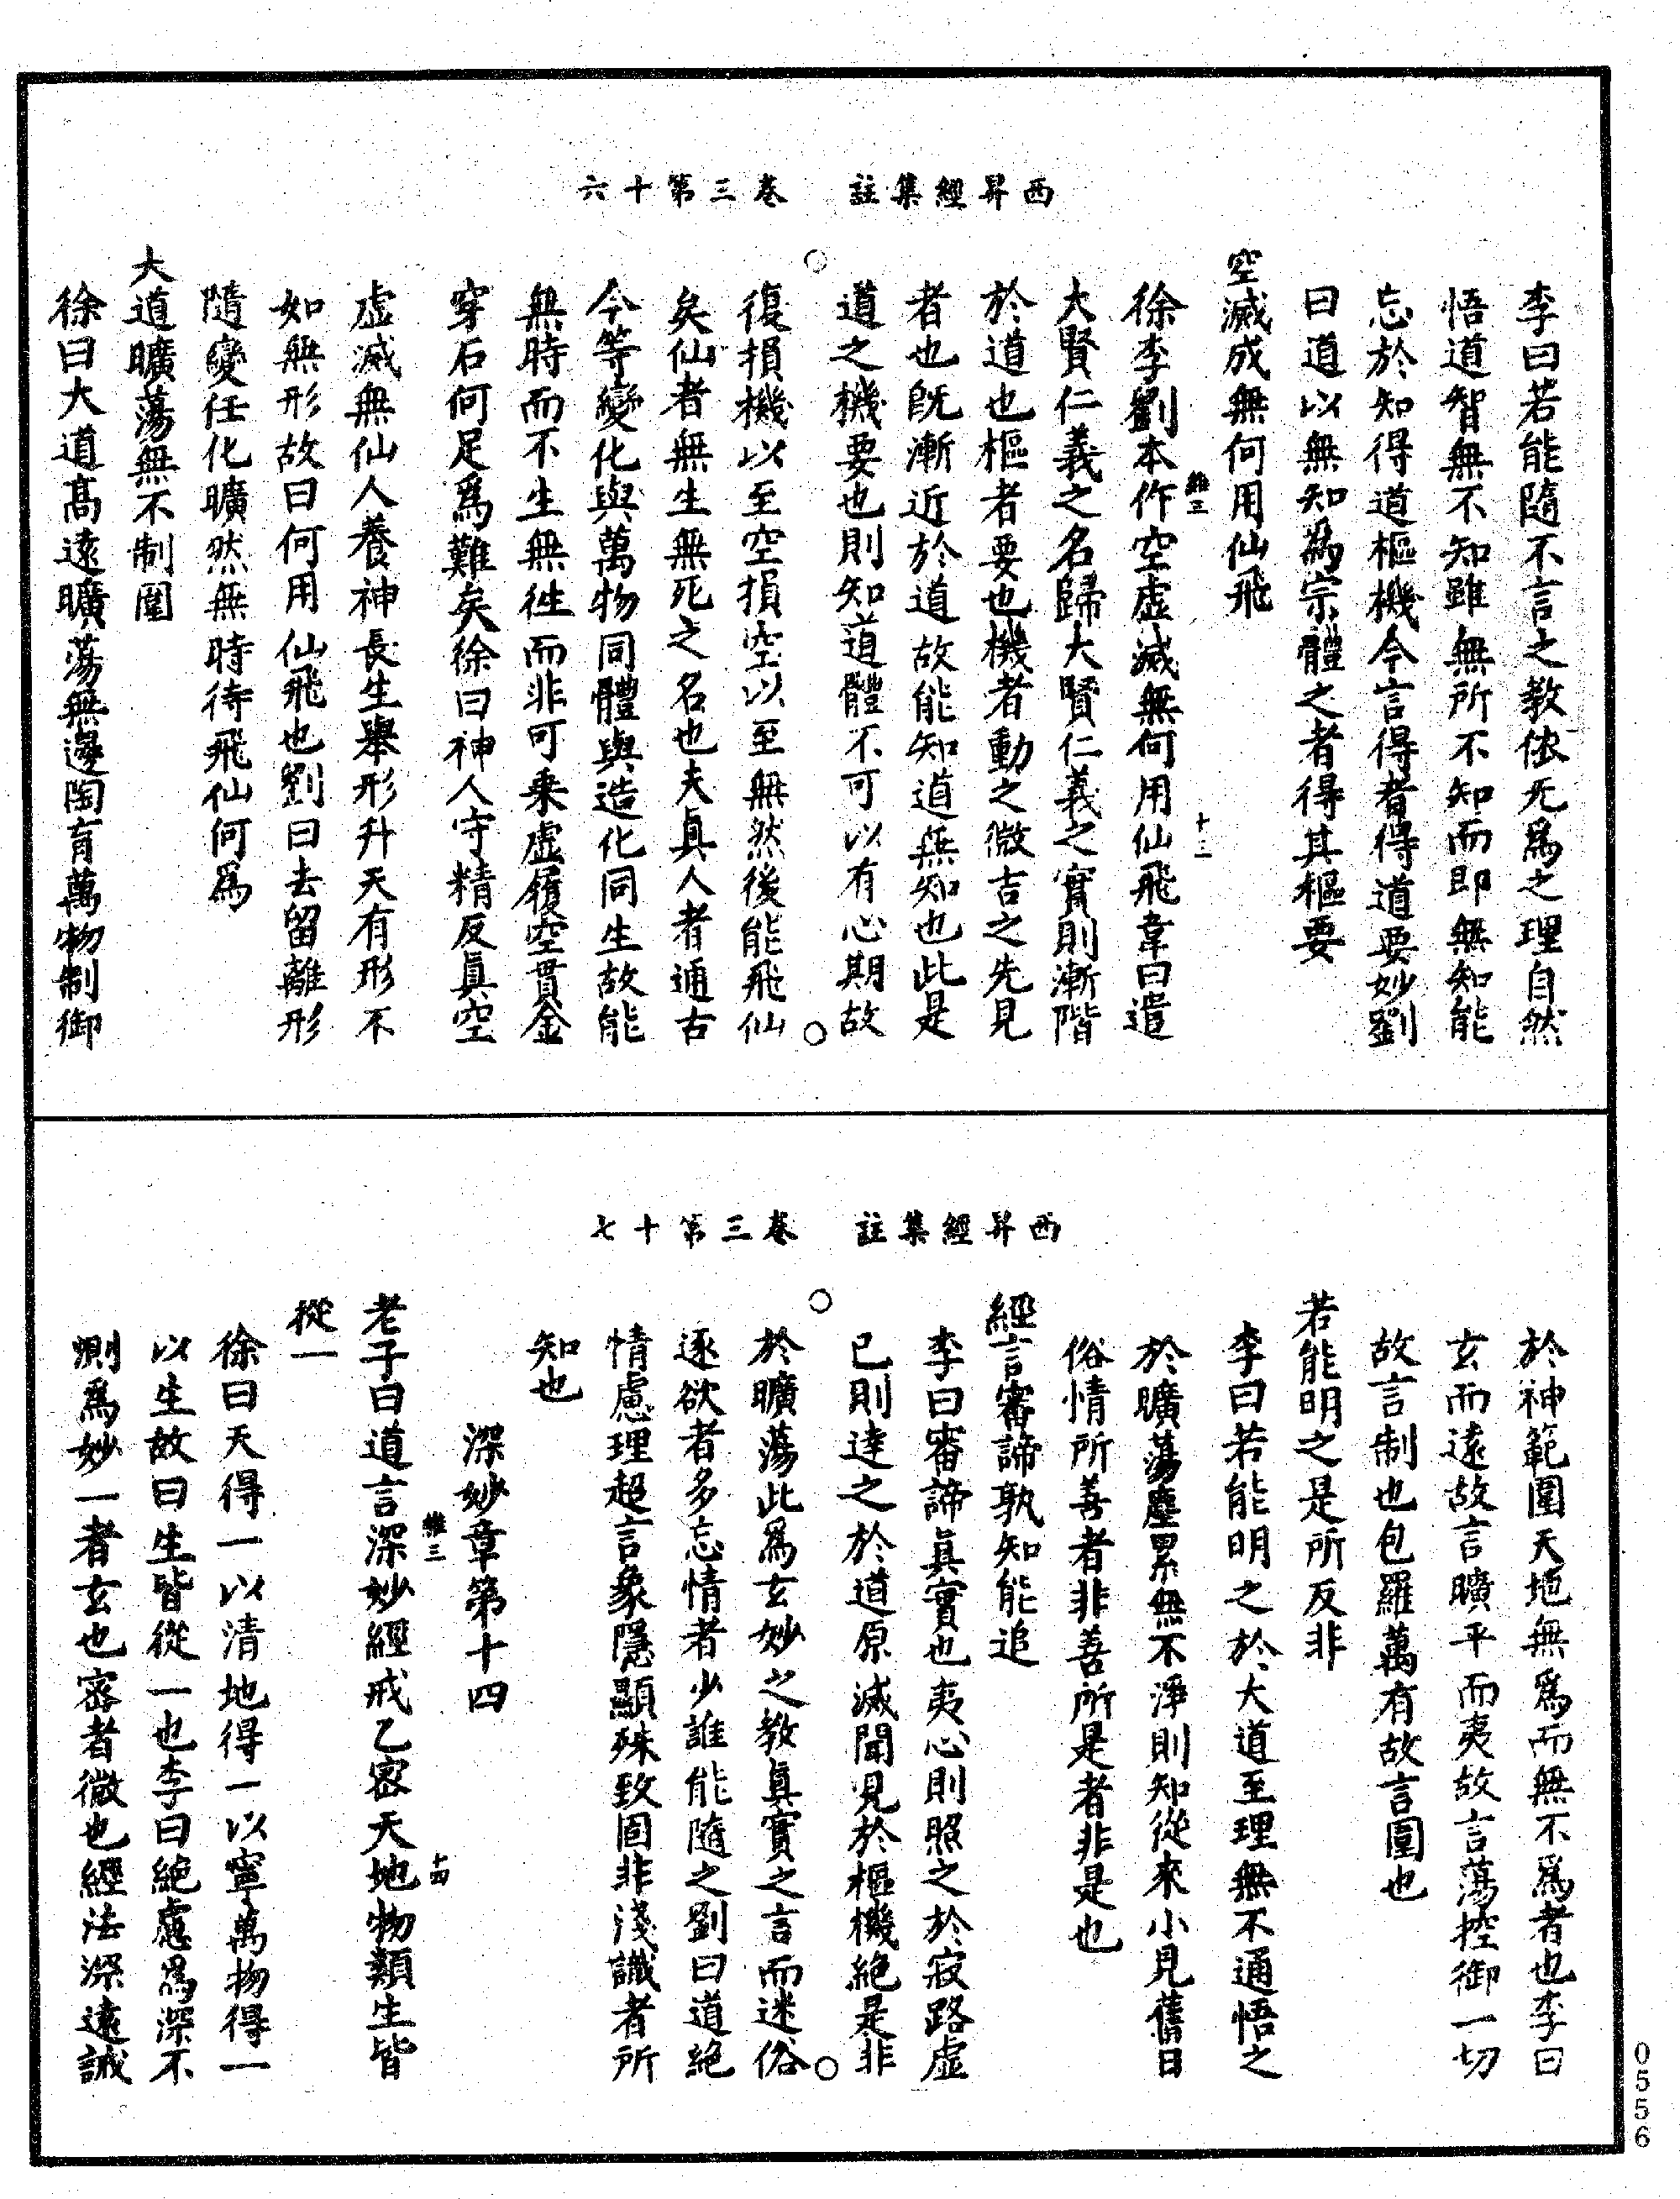 西昇經集註 卷三第十六
李曰若能隨不言之教依无爲之理自然
悟道智無不知雖無所不知而即無知能
忘於知得道樞機今言得者得道要妙劉
曰道以無知為宗體之者得其樞要
空滅成無何用仙飛
徐李劉本作空虛滅無何用仙飛韋曰遣
維三 十三
大賢仁義之名歸大賢仁義之實則漸階
於道也樞者要也機者動之微吉之先見
者也既漸近於道故能知道無知也此是
道之機要也則知道體不可以有心期故
復損機以至空損空以至無然後能飛仙
矣仙者無生無死之名也夫真人者通古
今等變化與萬物同體與造化同生故能
無時而不生無往而非可乘虛履空貫金
穿石何足爲難矣徐曰神人守精反真空
虛滅無仙人養神長生舉形升天有形不
如無形故曰何用仙飛也劉曰去留離形
隨變任化曠然無時待飛仙何爲
大道曠蕩無不制圍
徐曰大道高遠曠蕩無邊陶育萬物制御
西昇經集註 卷三第十七
於神範圍天地無爲而無不爲者也李曰
玄而遠故言曠平而夷故言蕩控御一切
故言制也包羅萬有故言圍也
若能明之是所反非
李曰若能明之於大道至理無不通悟之
於曠蕩塵累無不淨則知從來小見舊日
俗情所善者非善所是者非是也
經言審諦孰知能追
李曰審諦真實也夷心則照之於寂路虛
已則達之於道原滅聞見於樞機絕是非
於曠蕩此爲玄妙之教真實之言而迷俗
逐欲者多忘情者少誰能隨之劉曰道絕
情慮理超言象隱顯殊致固非淺識者所
知也
深妙章第十四
維三 十四
老子曰道言深妙經戒乙密天地物類生皆
從一
徐曰天得一以清地得一以寧萬物得一
以生故曰生皆從一也李曰絕慮爲深不
測爲妙一者玄也密者微也經法深遠誡
0556